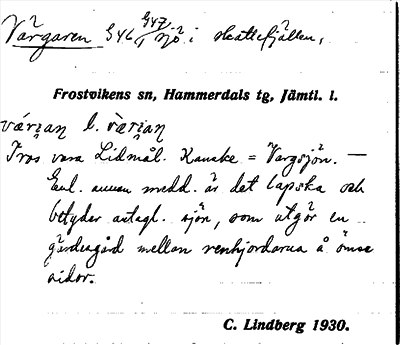 Vargaren 846, 847, sjö i skattefjällen,
Frostvikens sn, Hammerdals tg, Jämtl. l.
várian l. vàrian
Tros vara Lidmål. Kanske = Vargsjön. —
Enl. annan medd. är det lapska och
betyder avtagl. sjön, som utgör en
gärdesgård mellan renhjordarna å ömse
sidor.
C. Lindberg 1930.